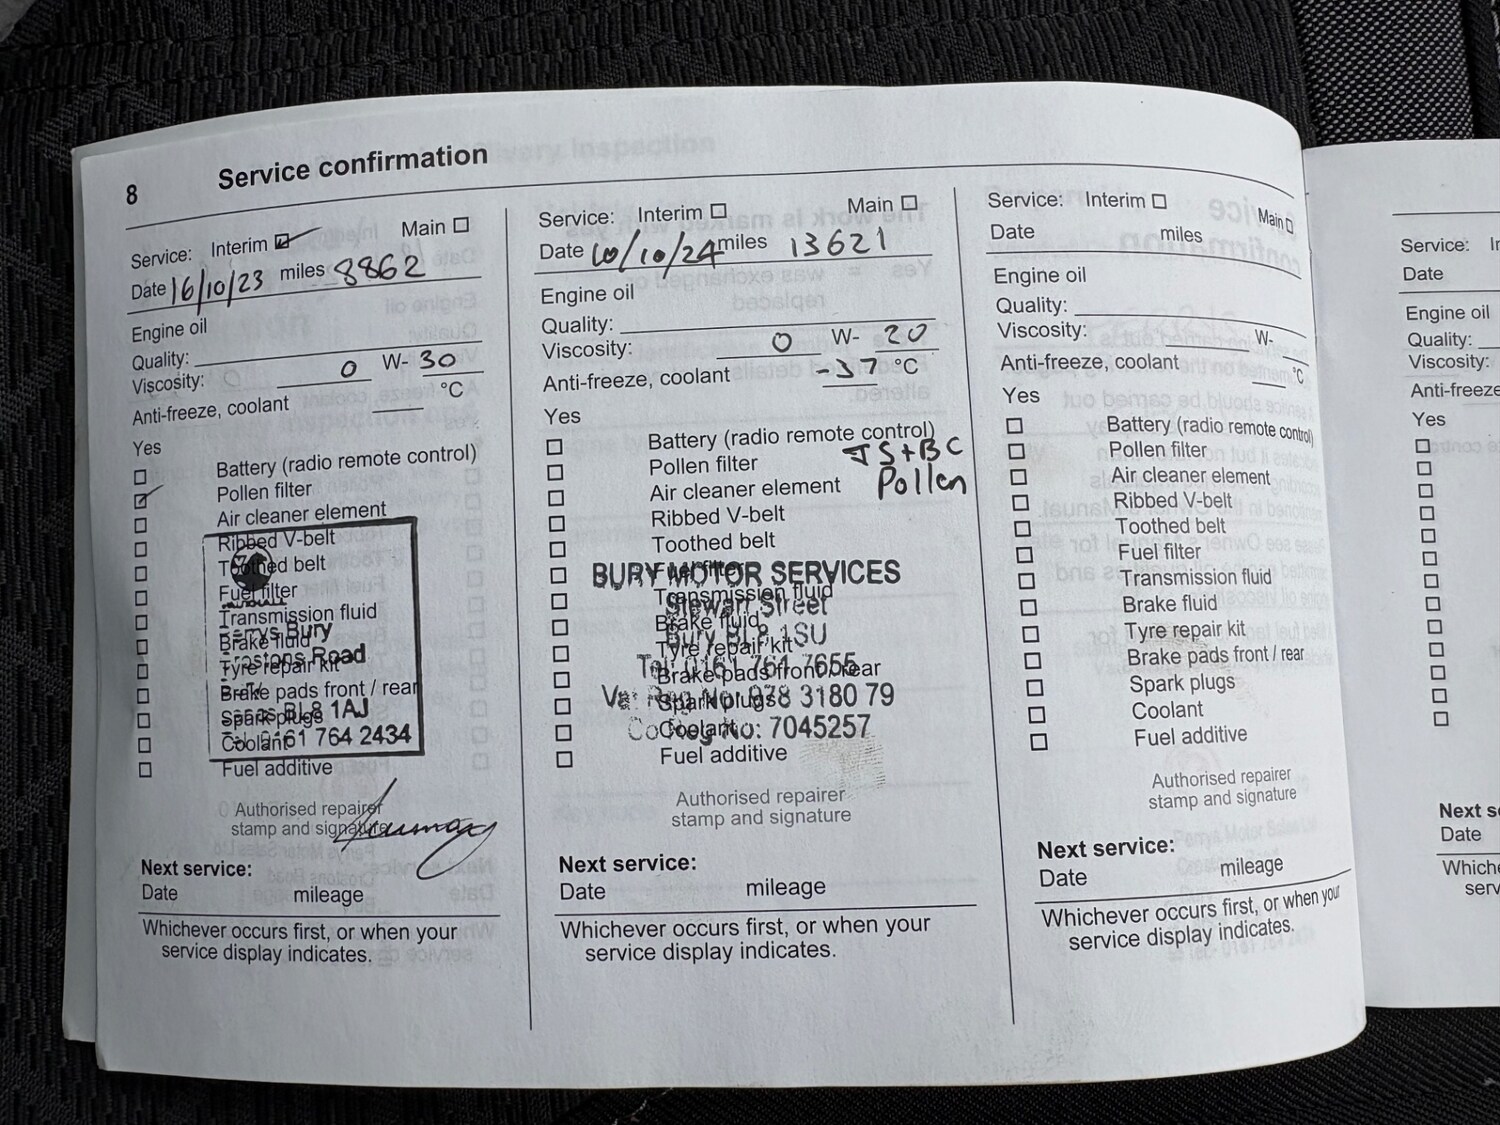 8 Service confirmation
Service: Interim Main
Date 16/10/23 miles 8862
Engine oil
Quality:
Viscosity: 0 W- 30
Anti-freeze, coolant °C
Yes
Battery (radio remote control)
Pollen filter
Air cleaner element
Ribbed V-belt
Toothed belt
Fuel filter
Transmission fluid
Perrys Bury
Brake fluid
Road
Tyre repair kit
Brake pads front / rear
BL8 1AJ
Spark plugs
0161 764 2434
Coolant
Fuel additive
Authorised repairer
stamp and signature
Next service:
Date mileage
Whichever occurs first, or when your
service display indicates.
Service: Interim Main
Date 10/10/24 miles 13621
Engine oil
Quality:
Viscosity: 0 W- 20
Anti-freeze, coolant -37 °C
Yes
Battery (radio remote control)
JS+BC
Pollen filter
Pollen
Air cleaner element
Ribbed V-belt
Toothed belt
Fuel filter
BURY MOTOR SERVICES
Transmission fluid
Stewart Street
Brake fluid
Bury BL8 1SU
Tyre repair kit
Tel: 0161 764 7655
Brake pads front / rear
Vat Reg No: 978 3180 79
Spark plugs
Co Reg No: 7045257
Coolant
Fuel additive
Authorised repairer
stamp and signature
Next service:
Date mileage
Whichever occurs first, or when your
service display indicates.
Service: Interim Main
Date miles
Engine oil
Quality:
Viscosity: W-
Anti-freeze, coolant °C
Yes
Battery (radio remote control)
Pollen filter
Air cleaner element
Ribbed V-belt
Toothed belt
Fuel filter
Transmission fluid
Brake fluid
Tyre repair kit
Brake pads front / rear
Spark plugs
Coolant
Fuel additive
Authorised repairer
stamp and signature
Next service:
Date mileage
Whichever occurs first, or when your
service display indicates.
Service:
Date
Engine oil
Quality:
Viscosity:
Anti-freeze
Yes
Next
Date